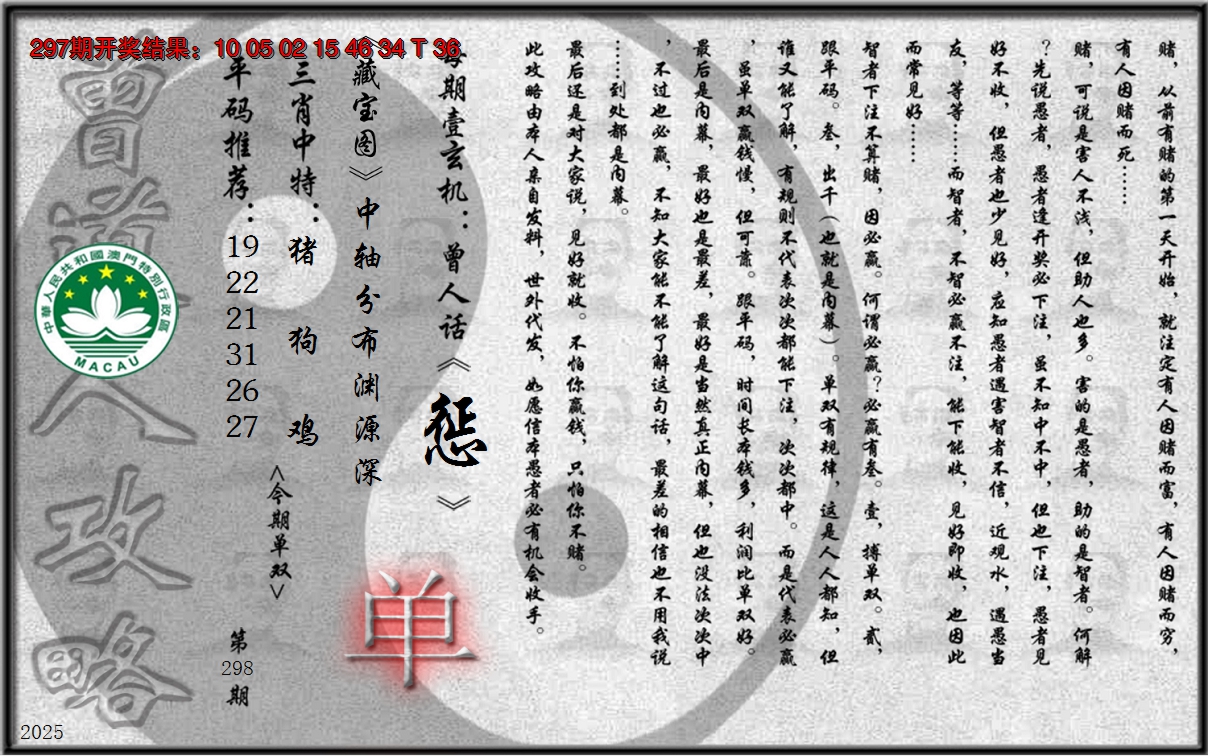 297期开奖结果：10 05 02 15 46 34 T 36
赌，从前有赌的第一天开始，就注定有人因赌而富，有人因赌而穷，
有人因赌而死……
赌，可说是害人不浅，但助人也多。害的是愚者，助的是智者。何解
？先说愚者，愚者逢开奖必下注，虽不知中不中，但也下注，愚者见
好不收，但愚者也少见好，应知愚者遇害智者不信，近观水，遇愚当
友，等等……而智者，不智必赢不注，能下能收，见好即收，也因此
而常见好……
智者下注不算赌，因必赢。何谓必赢？必赢有叁。壹，搏单双。贰，
跟平码。叁，出千（也就是内幕）。单双有规律，这是人人都知，但
谁又能了解，有规则不代表次次都能下注，次次都中。而是代表必赢
，虽单双赢钱慢，但可靠。跟平码，时间长本钱多，利润比单双好。
最后是内幕，最好也是最差，最好是当然真正内幕，但也没法次次中
，不过也必赢，不知大家能不能了解这句话，最差的相信也不用我说
……到处都是内幕。
最后还是对大家说，见好就收。不怕你赢钱，只怕你不赌。
此攻略由本人亲自发料，世外代发，如愿信本愚者必有机会收手。
每期壹玄机：曾人话《惩》
《藏宝图》中轴分布渊源深
单
三肖中特：猪 狗 鸡
<今期单双>
平码推荐：19 22 21 31 26 27
第298期
曾道人攻略
中華人民共和國澳門特別行政區
MACAU
2025